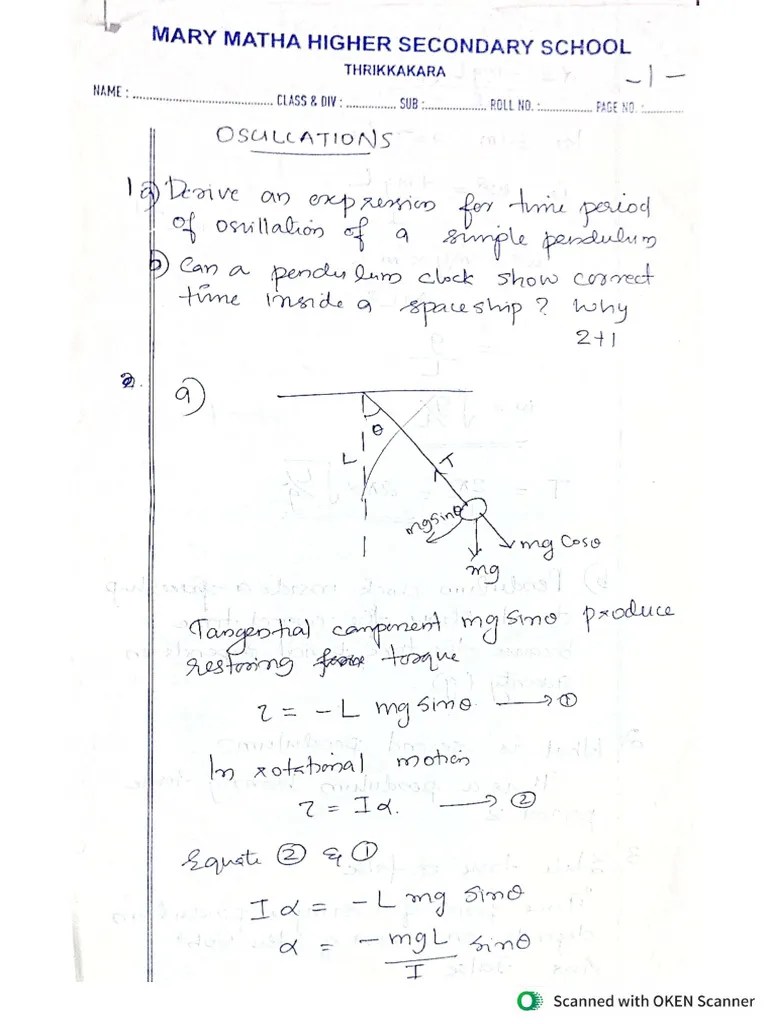 MARY MATHA HIGHER SECONDARY SCHOOL
THRIKKAKARA
-1-
NAME : ........ CLASS & DIV : ........ SUB : ........ ROLL NO. : ........ PAGE NO. : ........
OSCILLATIONS
1 a) Derive an expression for time period
of oscillation of a simple pendulum
b) Can a pendulum clock show correct
time inside a spaceship? Why
2+1
2.
a)
θ
L
T
mg sinθ
mg Cosθ
mg
Tangential component mg sinθ produce
restoring torque
τ = -L mg sinθ. → ①
In rotational motion
τ = Iα. → ②
Equate ② & ①
Iα = -L mg sinθ
α = -mgL/I sinθ
Scanned with OKEN Scanner